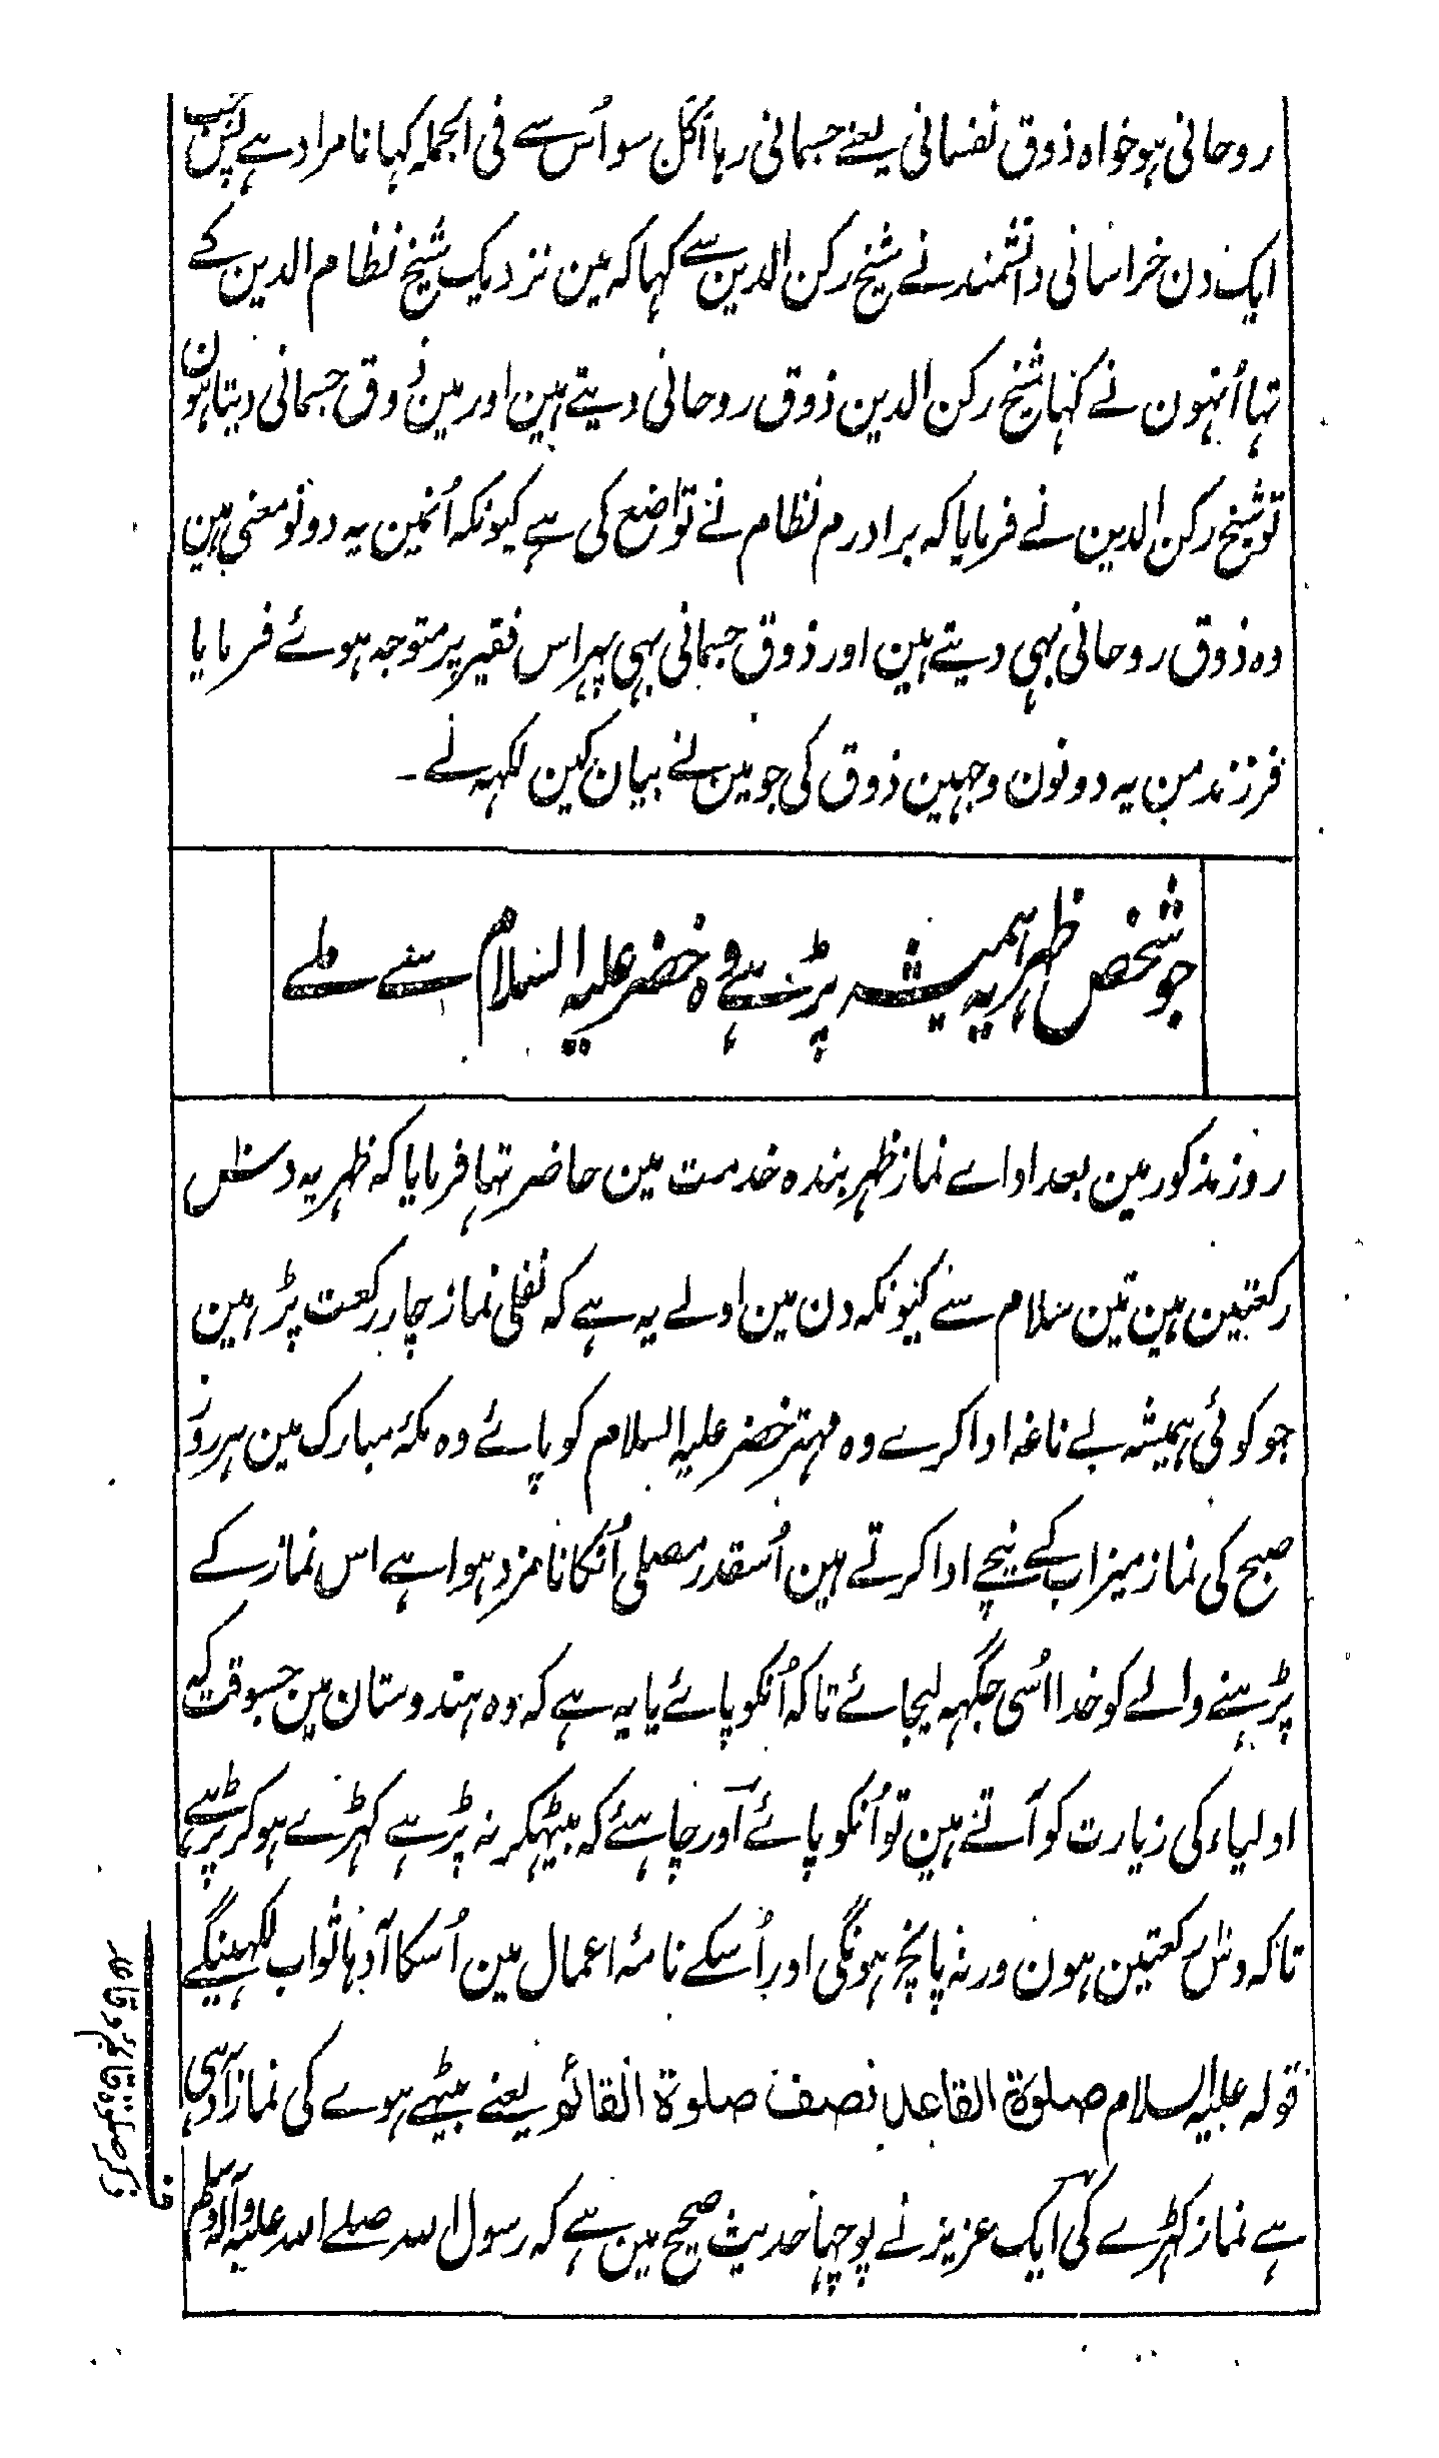 روحانی ہو خواہ ذوق نفسانی یعنے جسمانی رہا اُکُل سو اُس سے فی الجملہ کہانا مراد ہے پس
ایک دن خراسانی دانشمند نے شیخ رکن الدین سے کہا کہ مین نزدیک شیخ نظام الدین کے
تہا اُنہون نے کہا شیخ رکن الدین ذوق روحانی دیتے ہین اور مین ذوق جسمانی دیتا ہون
تو شیخ رکن الدین نے فرمایا کہ برادرم نظام نے تواضع کی ہے کیونکہ اُنمین یہ دونو معنی ہین
وہ ذوق روحانی بہی دیتے ہین اور ذوق جسمانی بہی پہر اس فقیر پر متوجہ ہوئے فرمایا
فرزند من یہ دونون وجہین ذوق کی جو مین نے بیان کین لکہہ لے ۔
جو شخص ظہریہ ہمیشہ پڑہے وہ خضر علیہ السلام سے ملے
روز مذکور مین بعد اداے نماز ظہر بندہ خدمت مین حاضر تہا فرمایا کہ ظہریہ دس
رکعتین ہین تین سلام سے کیونکہ دن مین اولے یہ ہے کہ نفلی نماز چار رکعت پڑہین
جو کوئی ہمیشہ بے ناغہ ادا کرے وہ مہتر خضر علیہ السلام کو پائے وہ مکۂ مبارک مین ہر روز
صبح کی نماز میزاب کے نیچے ادا کرتے ہین اُسقدر مصلی اُنکا نامزد ہوا ہے اس نماز کے
پڑہنے والے کو خدا اُسی جگہہ لیجائے تاکہ اُنکو پائے یا یہ ہے کہ وہ ہندوستان مین جسوقت کہ
اولیاء کی زیارت کو آتے ہین تو اُنکو پائے اور چاہئے کہ بیٹہکر نہ پڑہے کہڑے ہو کر پڑہے
تاکہ دس رکعتین ہون ورنہ پانچ ہونگی اور اُسکے نامۂ اعمال مین اُسکا آدہا ثواب لکہینگے
قولہ علیہ السلام صلوة القاعد نصف صلوة القائم یعنے بیٹہے ہوے کی نماز آدہی
ہے نماز کہڑے کی ایک عزیز نے پوچہا حدیث صحیح مین ہے کہ رسول اللہ صلے اللہ علیہ وآلہ وسلم